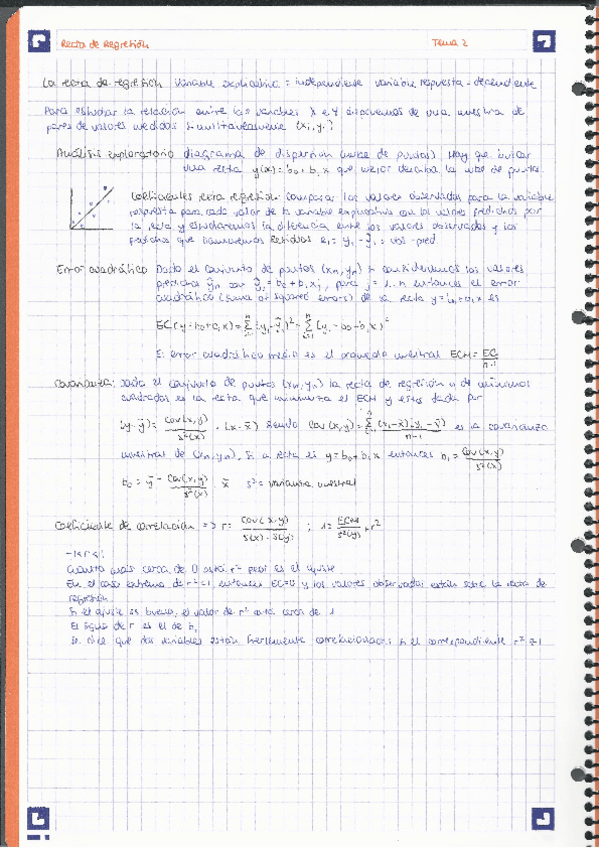 Recta de Regresión Tema 2
La recta de regresión variable explicativa = independiente variable respuesta - dependiente
Para estudiar la relación entre las variables X e Y disponemos de una muestra de
pares de valores medidos simultáneamente (xi, yi)
Análisis exploratorio diagrama de dispersión (nube de puntos) Hay que buscar
una recta y(x) = b0 + b1 x que mejor describa la nube de puntos.
Coeficientes recta regresión: comparar los valores observados para la variable
respuesta para cada valor de la variable explicativa con los valores predichos por
la recta y estudiaremos la diferencia entre los valores observados y los
predichos que llamaremos Residuos ei = yi - ŷi = obs - pred
Error cuadrático Dado el conjunto de puntos (xn, yn) si consideramos los valores
entonces el error
cuadrático (suma of squared errors) de la recta y = b0 + b1 x es
EC (y = b0 + b1 x) = Σ (yi - ŷi)² = Σ (yi - b0 - b1 x)²
El error cuadrático medio es el promedio muestral ECM = EC/n-1
Covarianza: Dado el conjunto de puntos (xn, yn) la recta de regresión o de mínimos
cuadrados es la recta que minimiza el ECM y está dada por
(y - ȳ) = Cov(x, y)/s²(x) · (x - x̄) siendo Cov(x, y) = Σ (xi - x̄)(yi - ȳ)/n-1 es la covarianza
muestral de (xn, yn). Si la recta es y = b0 + b1 x entonces b1 = Cov(x, y)/s²(x)
b0 = ȳ - Cov(x, y)/s²(x) · x̄ s² = varianza muestral
Coeficiente de correlación => r = Cov(x, y)/s(x) · s(y) ; 1 = ECM/s²(y) + r²
-1<r<1
Cuanto más cerca de 0 está r² peor es el ajuste
En el caso extremo de r² = 1, entonces EC=0 y los valores observados están sobre la recta de
regresión.
Si el ajuste es bueno, el valor de r² está cerca de 1
El signo de r es el de b1
Se dice que dos variables están fuertemente correlacionadas si el correspondiente r² ≈ 1